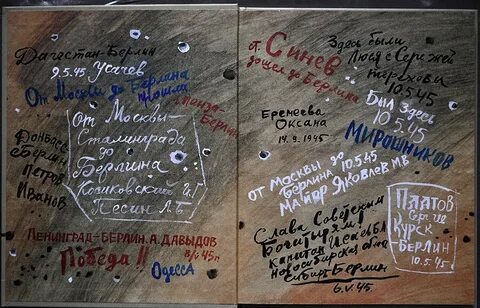 Дагестан-Берлин
9.5.45 Усачев
От Москвы до Берлина
дошла
Пенза-
Берлин
От Москвы-
Сталинграда
до
Берлина
Песин Л.Б
Донбасс
Берлин
Петров
Иванов
Ленинград-Берлин. А. Давыдов
Победа!!
8/V 45г
Одесса
от.
Синев
дошел до Берлина
Здесь были
Люся с Сережей
10.5.45
Еремеева
Оксана
14.9.1945
Был здесь
10.5.45
Мирошников
от Москвы до
Берлина 10.5.45
майор Яковлев МВ
Слава Советским
Богатырям!
Капитан
Новосибирская обл
Сибирь Берлин
6.V.45
Платов
Сергие
Курск
-Берлин
10.5.45